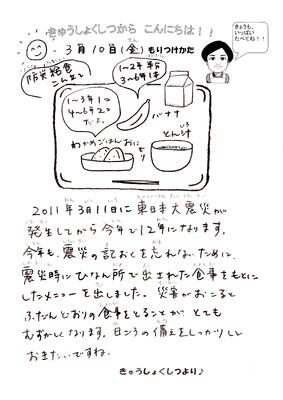 きゅうしょくしつから こんにちは！！
きょうも、
いっぱい
たべてね！！
3月10日(金) もりつけかた
防災給食
こんだて
1〜2年 半分
3〜6年 1本
1〜3年 1コ
4〜6年 2コ
だよ。
バナナ
とん汁
わかめごはんおにぎり
2011年3月11日に東日本大震災が
発生してから今年で12年になります。
今年も、震災の記おくを忘れないために、
震災時にひなん所で出された食事をもとに
したメニューを出しました。災害がおこると
ふだんどおりの食事をとることが とても
むずかしくなります。日ごろの備えをしっかりして
おきたいですね。
きゅうしょくしつより♪